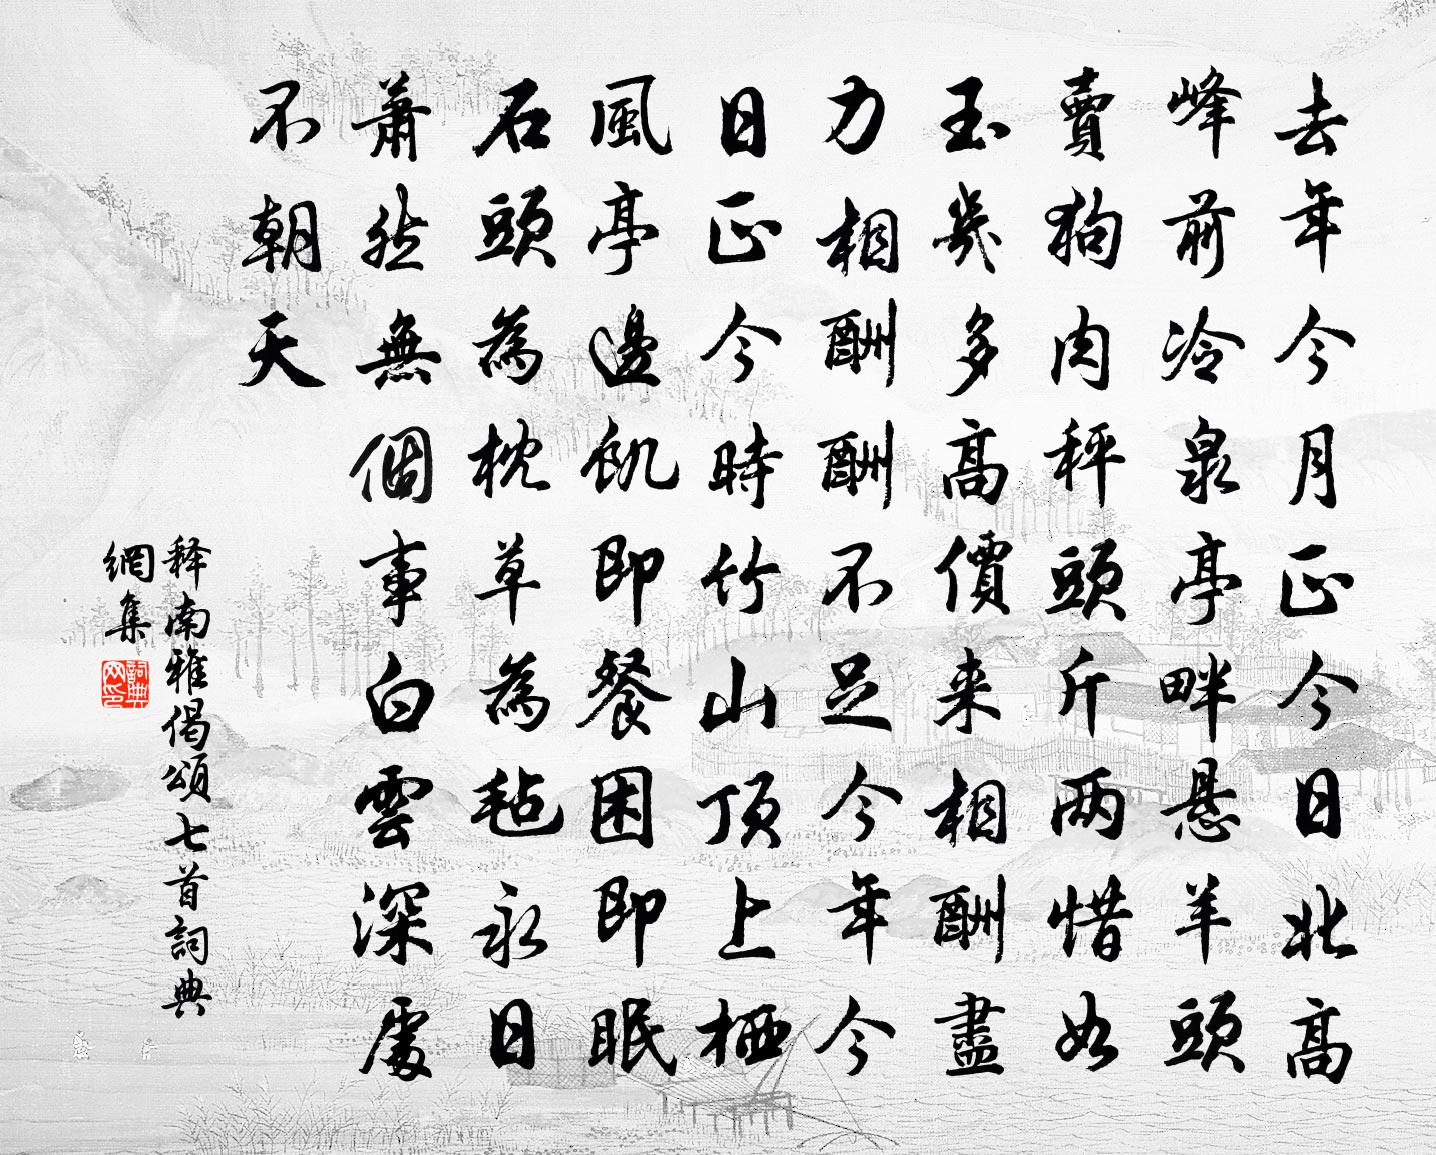 去年今月正今日北高
峰前冷泉亭畔悬羊頭
賣狗肉秤頭斤两惜如
玉幾多高價来相酬盡
力相酬酬不足今年今
日正今時竹山頂上栖
風亭邊飢即餐困即眠
石頭為枕草為毡永日
蕭然無個事白雲深處
不朝天
释南雅偈頌七首詞典
網集
詞典網印